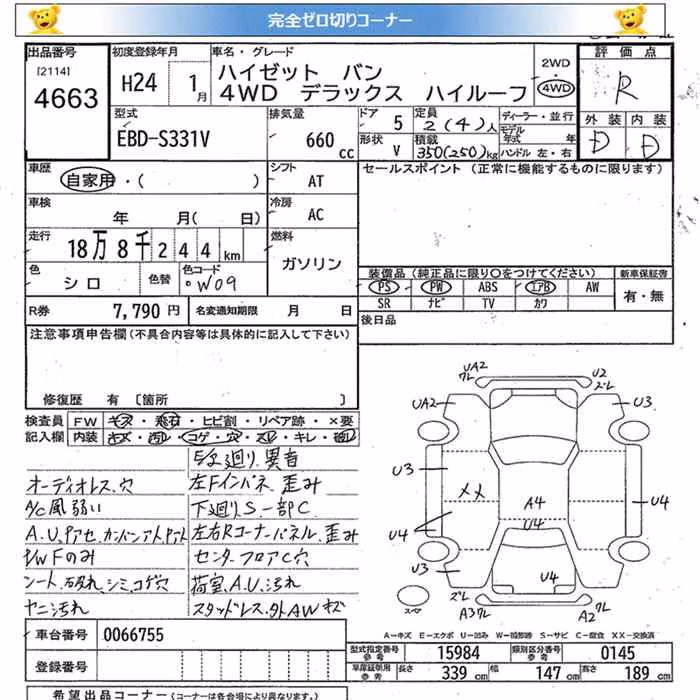 完全ゼロ切りコーナー
出品番号 初度登録年月 車名・グレード 評価点
[2114] 4663 H24 1月
ハイゼット バン
4WD デラックス ハイルーフ
2WD
4WD
R
型式 排気量 ドア 5 定員 2(4)人 ディーラー・並行 外装 内装
EBD-S331V 660cc 形状 V 積載 350(250)kg モデル年式 年 D D
ハンドル 左・右
車歴 シフト セールスポイント(正常に機能するものに限ります)
自家用・( ) AT
車検 冷房
年 月( 日) AC
走行 燃料
18万8千244km ガソリン
色 色替 色コード
シロ W09
装備品(純正品に限り〇をつけてください) 新車保証書
PS PW ABS エアB AW 有・無
SR ナビ TV カワ
R券 7,790円 名変通知期限 月 日
後日品
注意事項申告欄(不具合内容等は具体的に記入して下さい)
修復歴 有 [箇所 ]
検査員 FW キズ・飛石・ヒビ割・リペア跡・×要
記入欄 内装 キズ・汚レ・コゲ・穴・スレ・キレ・破レ
廻り.異音
オーディオレス.穴 左Fインパネ.歪み
A/C風弱い 下廻りS一部C
左右Rコーナーパネル.歪み
P/WFのみ センターフロアC穴
シート.破れ.シミ.コゲ穴 荷室.A.U.汚れ
ヤニ汚れ スタッドレス.外AWキズ
UA2
ワレ
U2
ズレ
UA2 U3
U3 メメ A4 U4
U4 U4
U3 U4
ズレ
A3ワレ A2ワレ
スペア
A-キズ E-エクボ U-凹み W-補修跡 S-サビ C-腐食 XX-交換済
車台番号 0066755
登録番号
型式指定番号 参考 15984 類別区分番号 参考 0145
車庫証明用 参考 長さ 339cm 幅 147cm 高さ 189cm
希望出品コーナー (コーナーは各会場により異なります。)